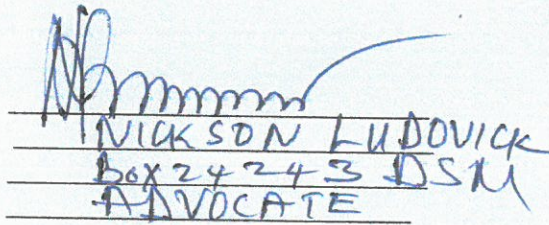 NICKSON LUDOVICK
BOX 24243 DSM
ADVOCATE